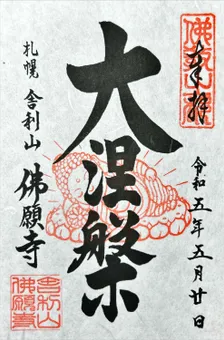 奉拝
令和五年五月廿日
大涅槃
札幌
舎利山
佛願寺
舎利山
佛願寺